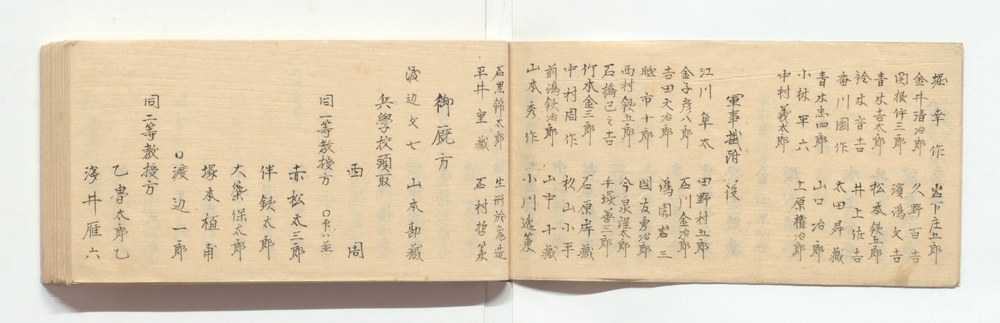 堀 幸作 岩下庄五郎
金井清治郎 久野百吉
関根伴三郎 濱鴻文吉
青木吉太郎 松葉鉄五郎
鈴木音吉 井上佐吉
香川國作 太田昇藏
青木忠四郎 山口冶郎
小林平六 上原権冶郎
中村義太郎
軍事掛附属役
江川阜太 田野村五郎
金子彦八郎 石川金治郎
吉田文治郎 鴻岡岩三
市十郎 國友勇冶郎
西村鉄五郎 今泉濯太郎
石橋已之吉 手塚善三郎
竹本金三郎 石原库藏
中村周作 秋山小平
前鴻鉄治郎 山中十藏
山本秀作 小川逸策
石黒錦太郎 生形於兎造
平井重藏 石村哲策
御厩方
渡辺文七 山本勘藏
兵學校頭取
西 周
同一等教授方
赤松太三郎
伴鉄太郎
大築保太郎
塚本植甫
渡辺一郎
同二等教授方
乙骨太郎乙
浅井雁六